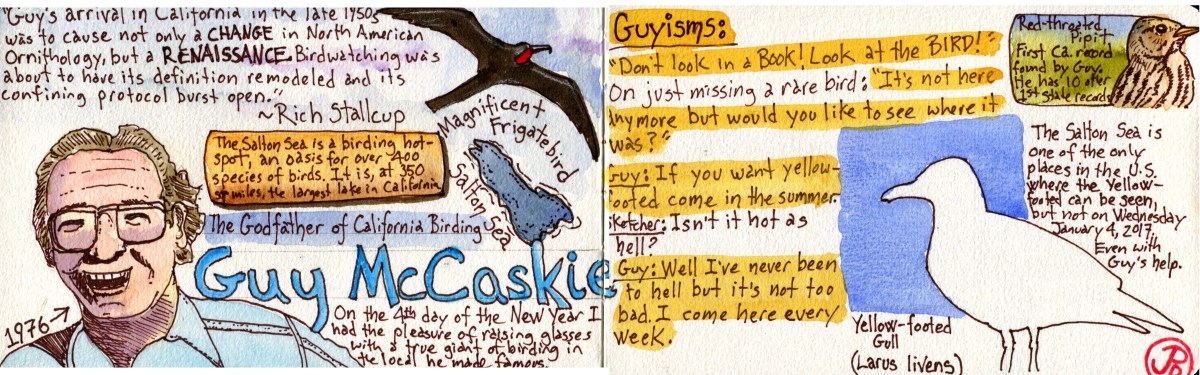 "Guy's arrival in California in the late 1950s
was to cause not only a CHANGE in North American
Ornithology, but a RENAISSANCE. Birdwatching was
about to have its definition remodeled and its
confining protocol burst open."
~Rich Stallcup
Magnificent
Frigatebird
The Salton Sea is a birding hot-
spot, an oasis for over 400
species of birds. It is, at 350
sq miles, the largest lake in California
Salton Sea
The Godfather of California Birding
Guy McCaskie
1976→
On the 4th day of the New Year I
had the pleasure of raising glasses
with a true giant of birding in
the local he made famous.
Guyisms:
"Don't look in a Book! Look at the BIRD!"
On just missing a rare bird: "It's not here
anymore but would you like to see where it
was?"
Guy: If you want yellow-
footed come in the summer.
Sketcher: Isn't it hot as
hell?
Guy: Well I've never been
to hell but it's not too
bad. I come here every
week.
Red-throated
Pipit
First Ca. record
found by Guy.
He has 10 other
1st state records
The Salton Sea is
one of the only
places in the U.S.
where the Yellow-
footed can be seen,
but not on Wednesday
January 4, 2017.
Even with
Guy's help.
Yellow-footed
Gull
(Larus livens)